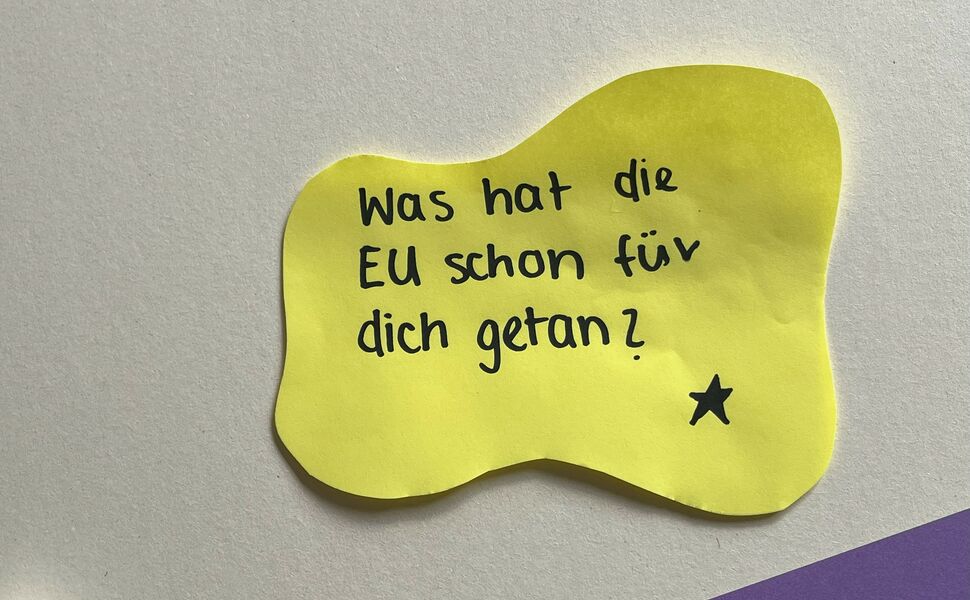 Was hat die
EU schon für
dich getan?